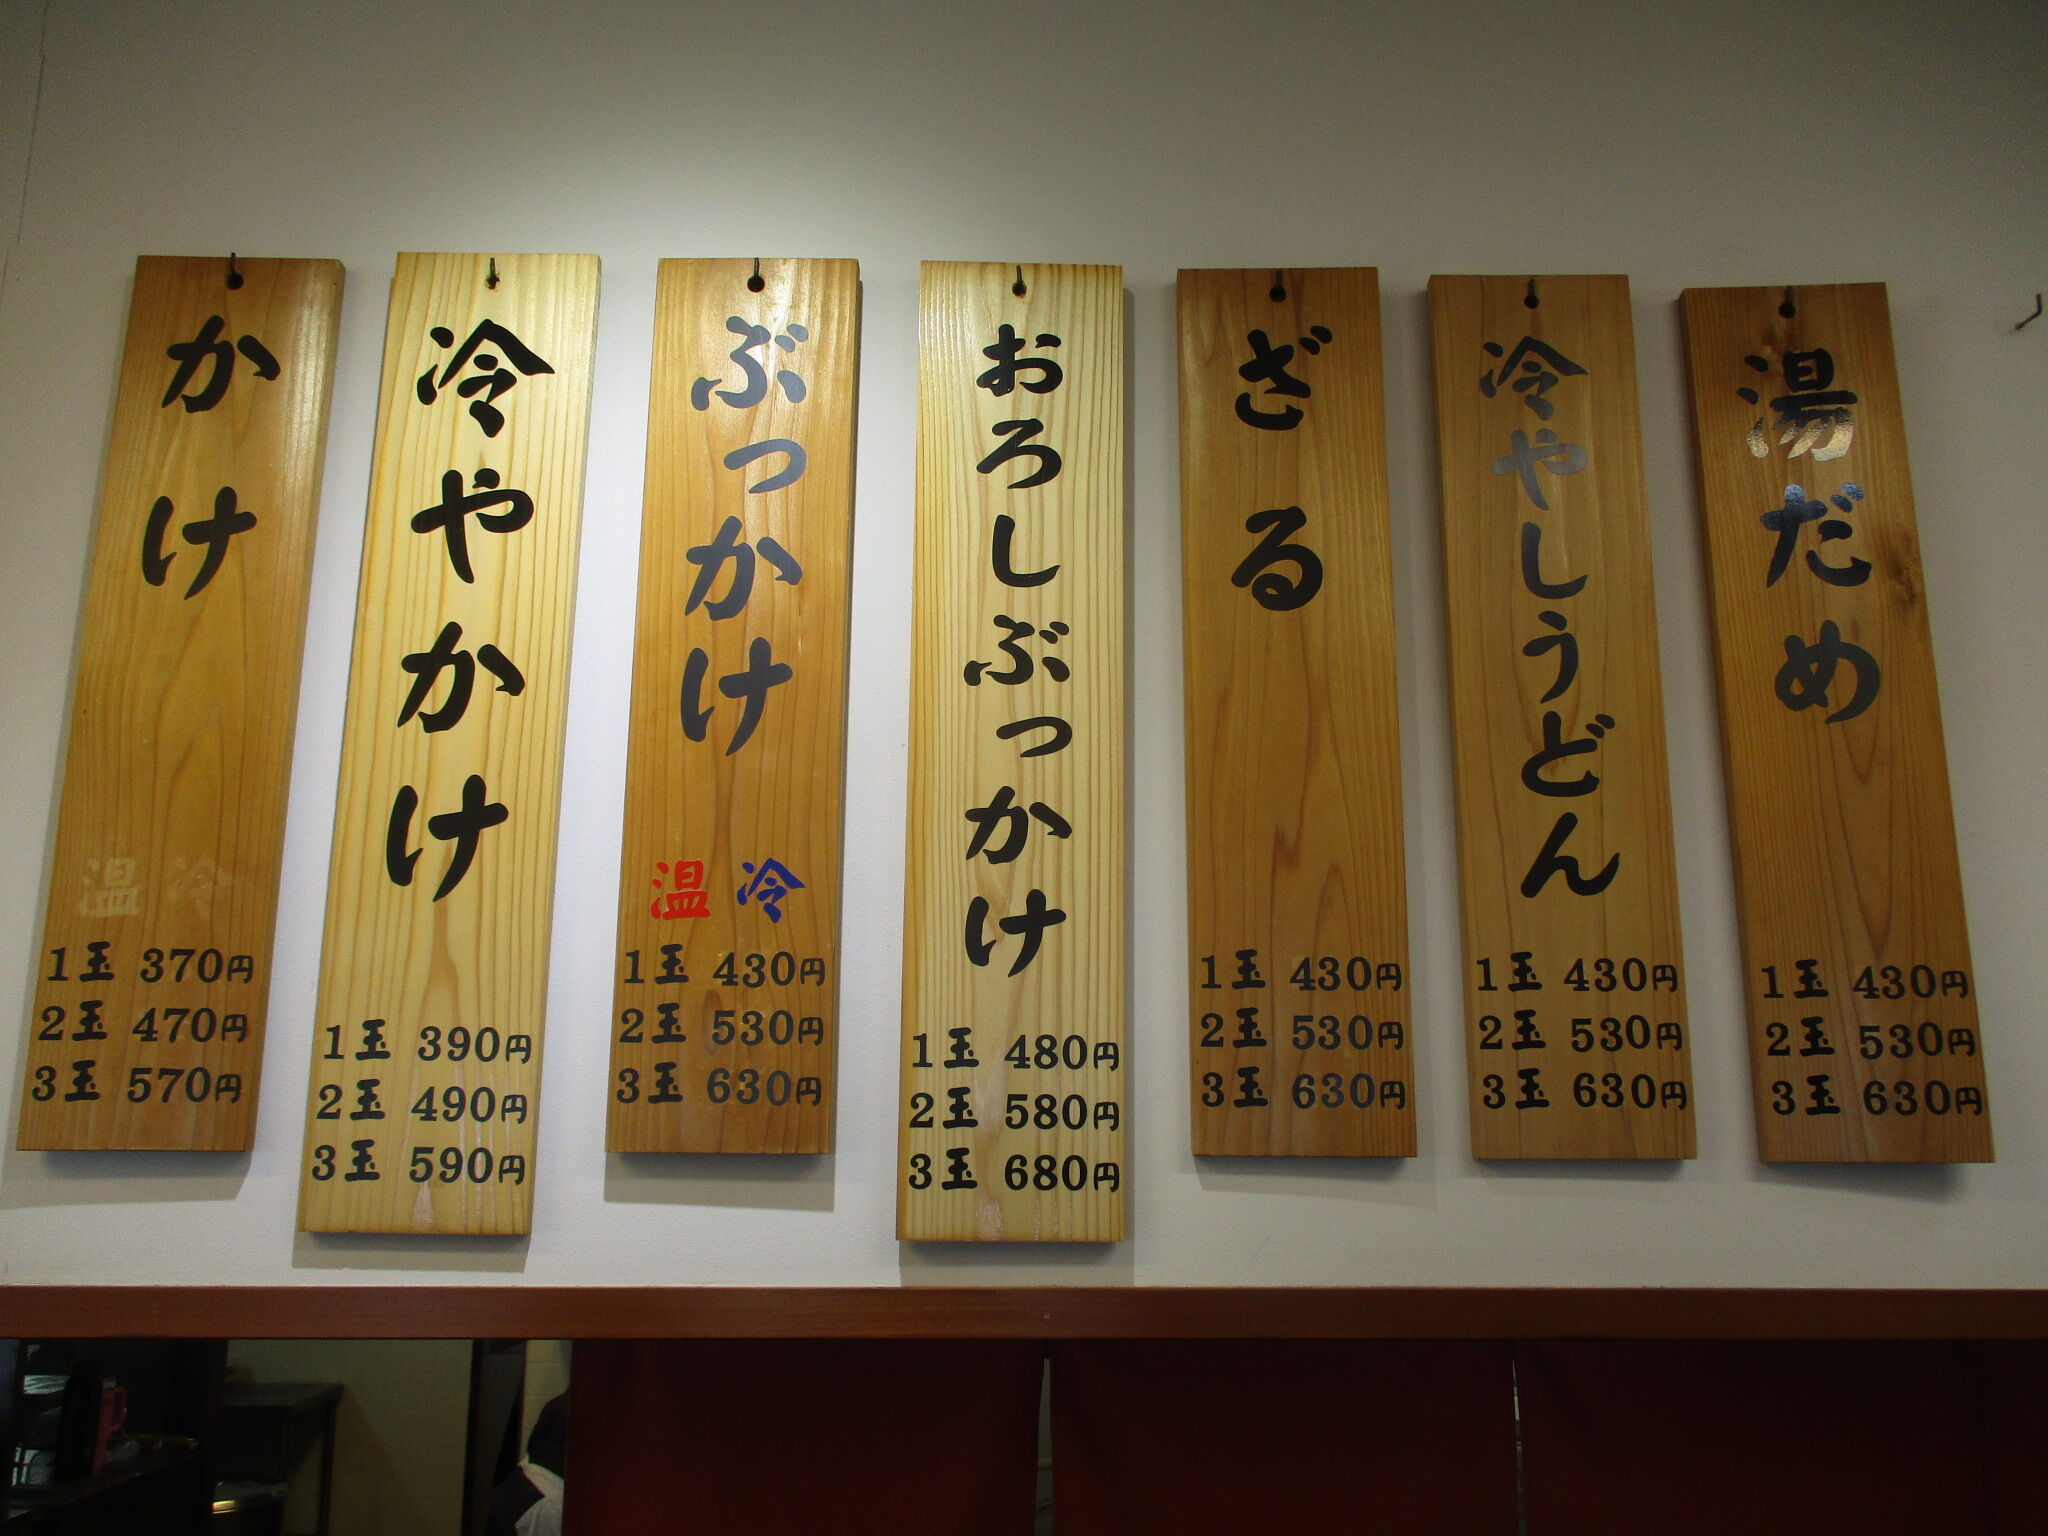 かけ
温 冷
1玉 370円
2玉 470円
3玉 570円
冷やかけ
1玉 390円
2玉 490円
3玉 590円
ぶっかけ
温 冷
1玉 430円
2玉 530円
3玉 630円
おろしぶっかけ
1玉 480円
2玉 580円
3玉 680円
ざる
1玉 430円
2玉 530円
3玉 630円
冷やしうどん
1玉 430円
2玉 530円
3玉 630円
湯だめ
1玉 430円
2玉 530円
3玉 630円